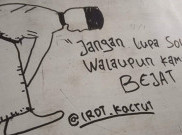 "Jangan lupa Sol
Walaupun kam
BEJAT
@IROT_KOCTUI